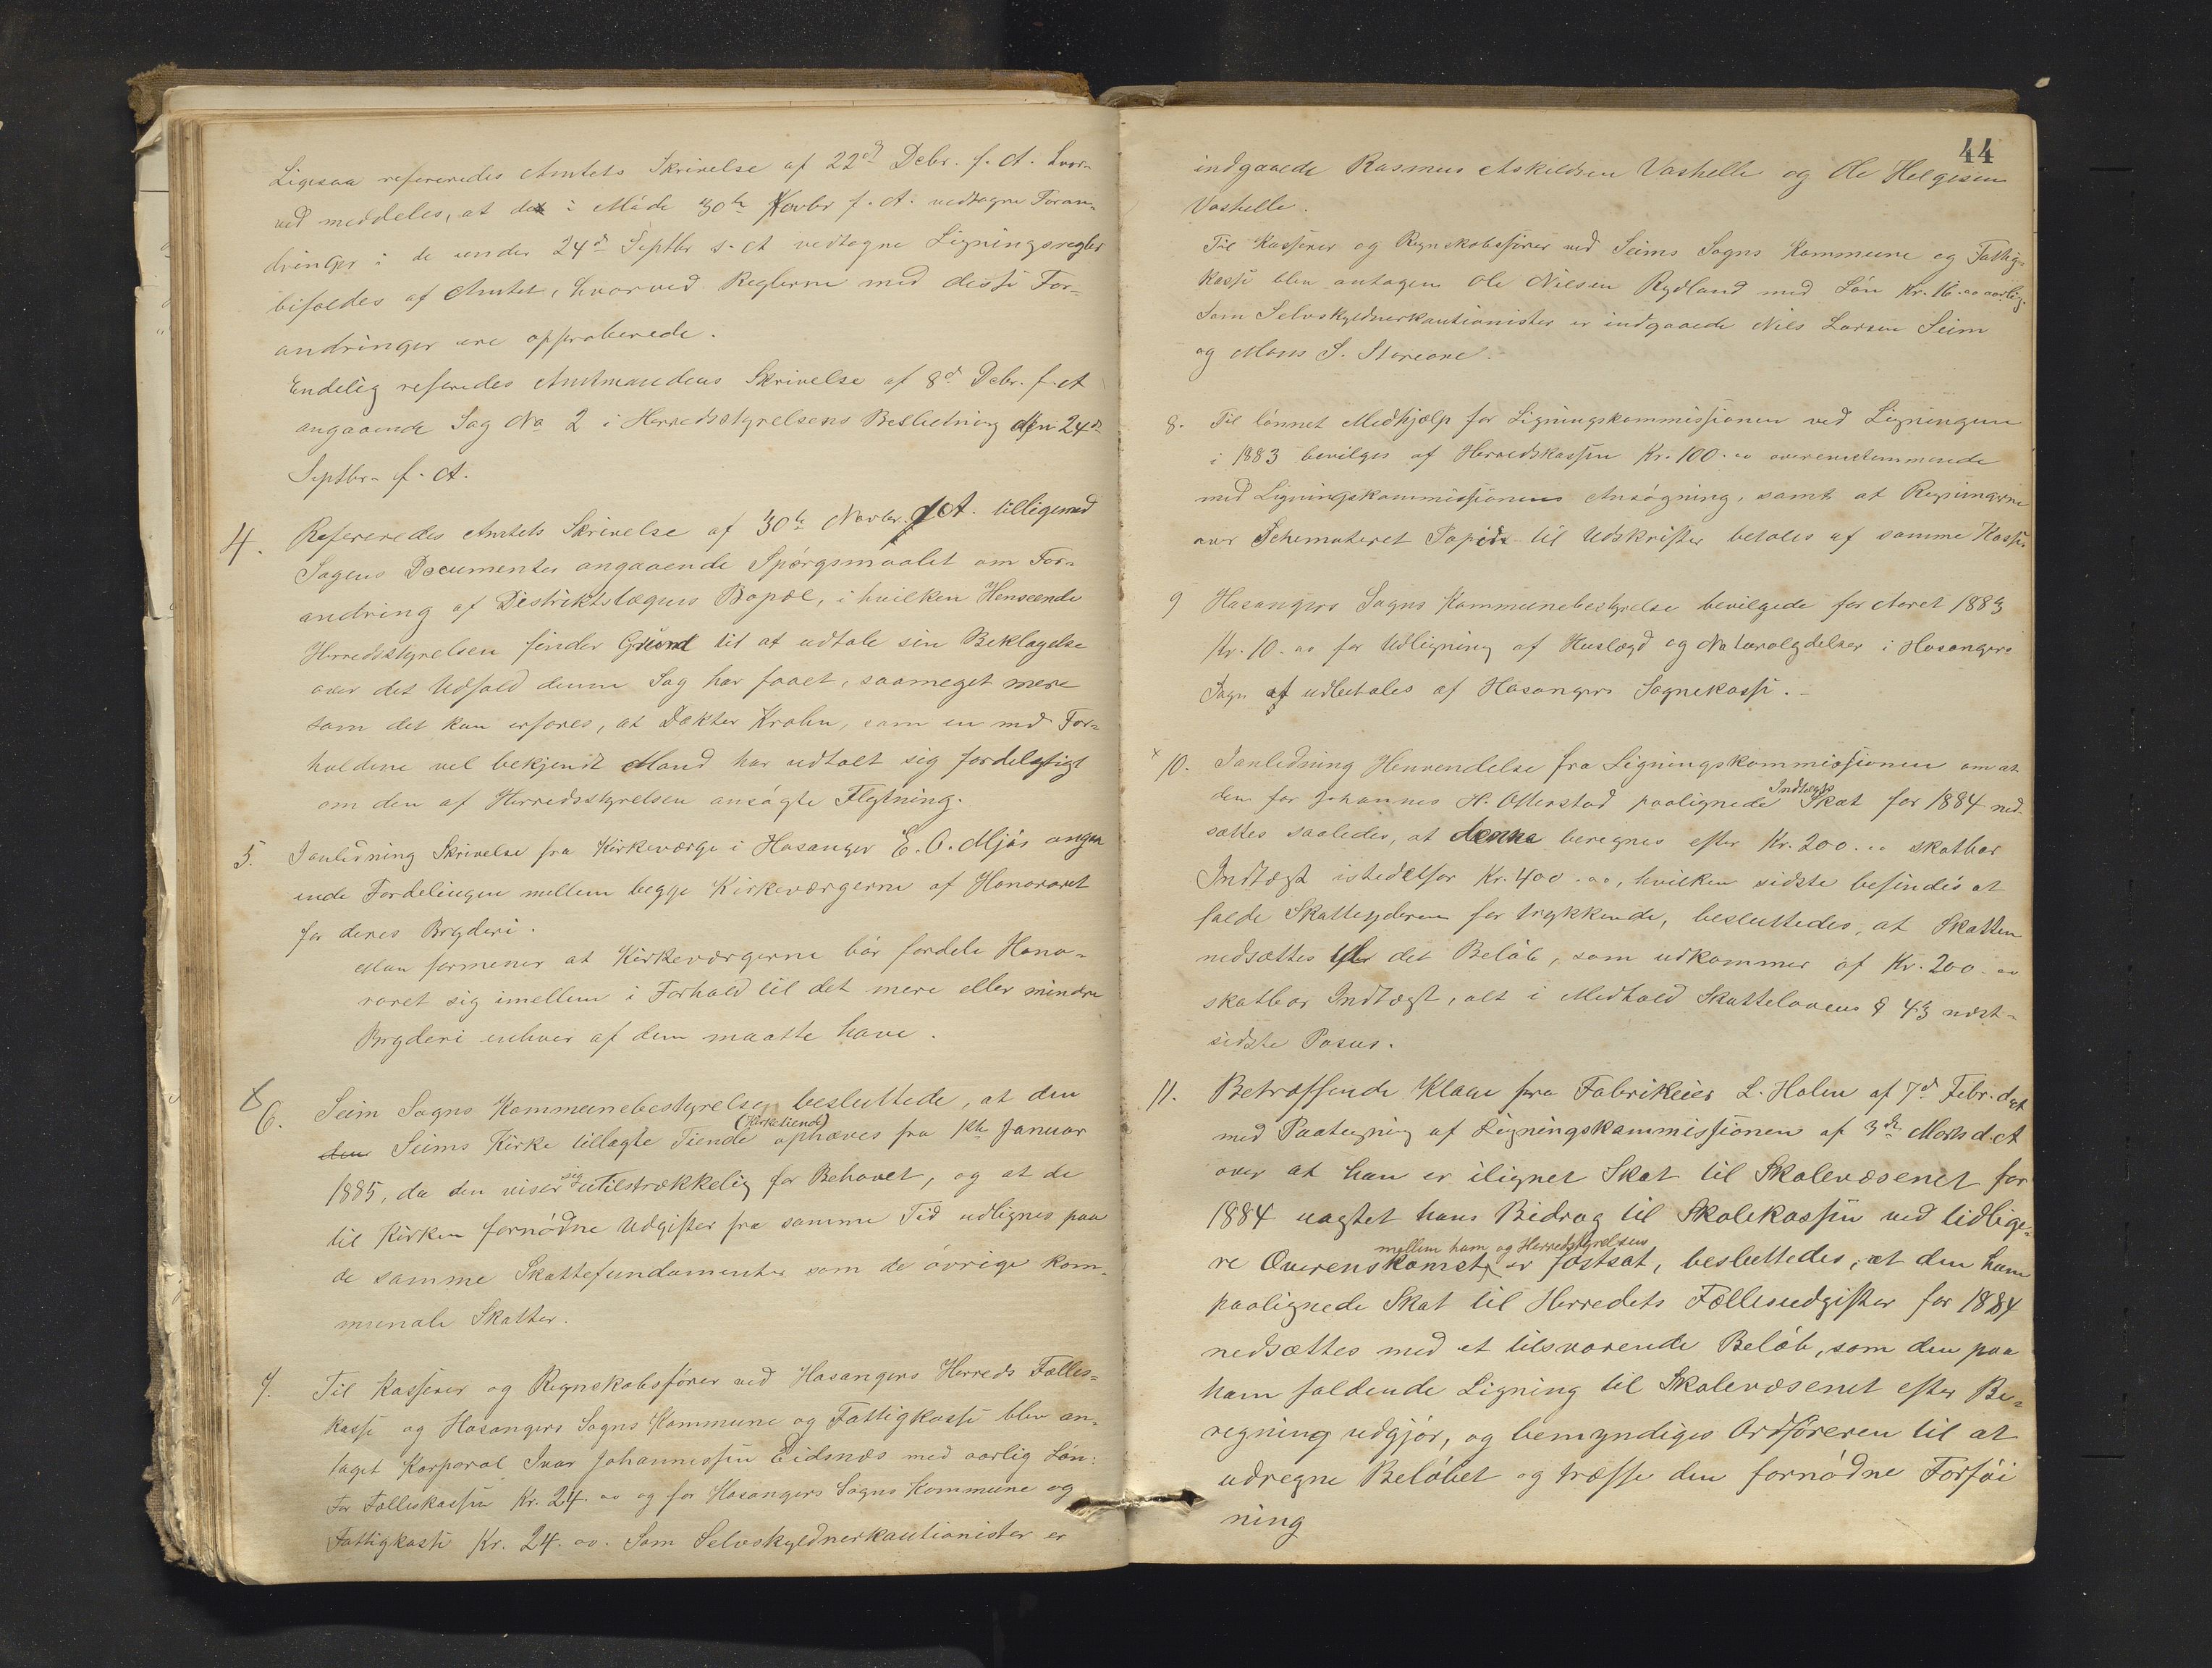 Ligesaa refereredes Amtets Skrivelse af 22d Debr. f. A. hvor-
ved meddeles, at de i Møde 30te Novbr f. A. vedtagne Foran-
dringer i de under 24d Septbr s. A vedtagne Ligningsregler
bifaldes af Amtet, hvorved Reglerne med disse For-
andringer ere approberede.
Endelig referedes Amtmandens Skrivelse af 8d Debr. f. A
angaaende Sag No 2 i Herredsstyrelsens Beslutning den 24d
Septbr. f. A.
4. Refereredes Amtets Skrivelse af 30te Novbr. f A. tilligemed
Sagens Documenter angaaende Spørgsmaalet om For-
andring af Distriktslægens Bopæl, i hvilken Henseende
Herredsstyrelsen finder Grund til at udtale sin Beklagelse
over det Udfald denne Sag har faaet, saameget mere
som det kan erfares, at Doktor Krohn, som en med For-
holdene vel bekjendt Mand har udtalt sig fordelagtigt
om den af Herredsstyrelsen ansøgte Flytning.
5. I anledning Skrivelse fra Kirkeværge i Hosanger E. O. Mjøs angaa
ende Fordelingen mellem begge Kirkeværgerne af Honoraret
for deres Bryderi.
Man formener at Kirkeværgerne bør fordele Hono-
raret sig imellem i Forhold til det mere eller mindre
Bryderi enhver af dem maatte have.
x 6. Seim Sogns Kommunebestyrelse besluttede, at den
den Seims Kirke tillagte Tiende (Kirketiende) ophæves fra 1ste Januar
1885, da den viser sig utilstrækkelig for Behovet, og at de
til Kirken fornødne Udgifter fra samme Tid udlignes paa
de samme Skattefundamenter som de øvrige kom-
munale Skatter.
7. Til Kasserer og Regnskabsfører ved Hosangers Herreds Fælles-
kasse og Hosangers Sogns Kommune og Fattigkasse blev an-
taget Korporal Ivar Johannessen Eidsnæs med aarlig Løn:
For Felleskassen Kr. 24.00 og for Hosangers Sogns Kommune og
Fattigkasse Kr. 24.00. Som Selvskyldnerkautionister er
44
indgaaede Rasmus Askildsen Vashelle og Ole Helgesen
Vashelle.
Til Kasserer og Regnskabsfører ved Seims Sogns Kommune og Fattig-
kasse blev antagen Ole Nilsen Rydland med Løn Kr. 16.00 aarlig.
Som Selvskyldnerkautionister er indgaaede Nils Larsen Seim
og Mons S. Storeone.
8. Til lønnet Medhjælp for Ligningskommissionen ved Ligningen
i 1883 bevilges af Herredskassen Kr. 100.00 overensstemmende
med Ligningskommissionens Ansøgning, samt at Regningerne
over Schemateret Papir til Udskrifter betales af samme Kasse
9 Hosangers Sogns Kommunebestyrelse bevilgede for Aaret 1883
Kr. 10.00 for Udligning af Huslægd og Naturalydelser i Hosangers
Sogn at udbetales af Hosangers Sognekasse.
x 10. I anledning Henvendelse fra Ligningskommissionen om at
den for Johannes H. Otterstad paalignede Indtægts Skat for 1884 ned-
sættes saaledes, at denne beregnes efter Kr. 200.00 skatbar
Indtægt istedetfor Kr. 400.00, hvilken sidste befindes at
falde Skatteyderen for trykkende, besluttedes, at Skatten
nedsættes til det Beløb, som udkommer af Kr. 200.00
skatbar Indtægt, alt i Medhold Skattelovens § 43 næst-
sidste Passus.
11. Betræffende Klage fra Fabrikeier L. Holm af 7d Febr. d A
med Paategning af Ligningskommissionen af 3de Marts d. A
over at han er ilignet Skat til Skolevæsenet for
1884 uagtet hans Bidrag til Skolekassen ved tidlige-
re Overenskomst mellem ham og Herredsstyrelsen er fastsat, besluttedes, at den ham
paalignede Skat til Herredets Fællesudgifter for 1884
nedsættes med et tilsvarende Beløb, som den paa
ham faldende Ligning til Skolevæsenet efter Be-
regning udgjør, og bemyndiges Ordføreren til at
udregne Beløbet og træffe den fornødne Forføi
ning